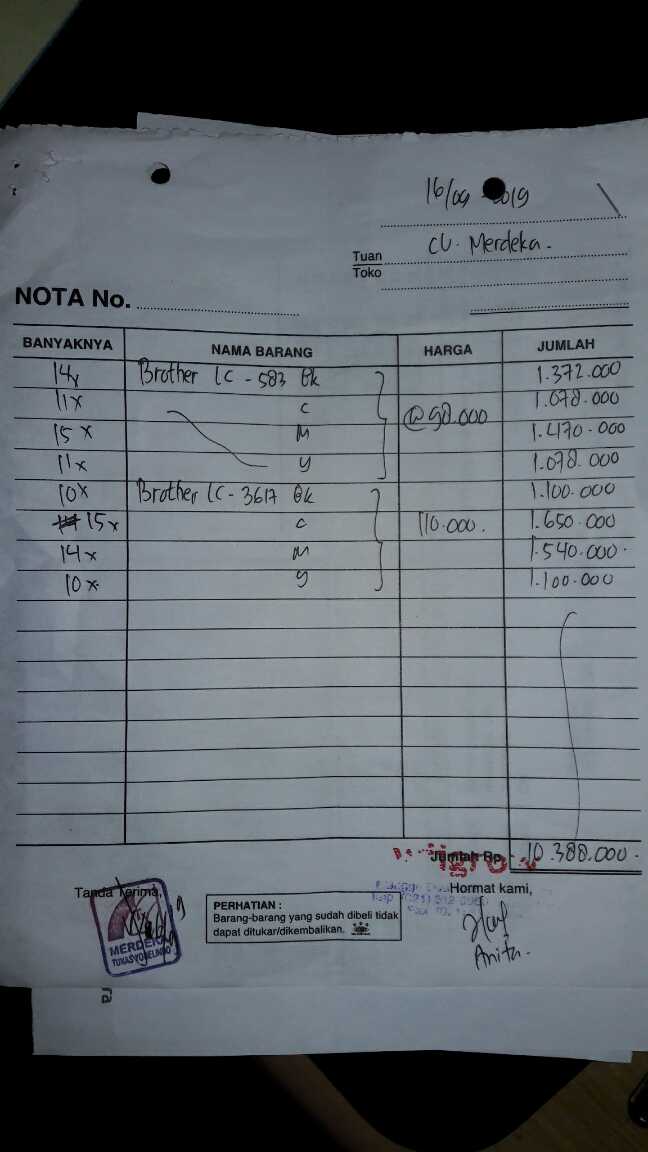 16/09 2019
Tuan CV. Merdeka.
Toko
NOTA No.
BANYAKNYA NAMA BARANG HARGA JUMLAH
14x Brother LC - 583 Bk 1.372.000
11x C @98.000 1.078.000
15 x M 1.470.000
11x Y 1.078.000
10x Brother LC - 3617 Bk 1.100.000
15x C 110.000. 1.650.000
14x M 1.540.000.
10x Y 1.100.000
Jumlah Rp. 10.388.000.
Tanda Terima, Hormat kami,
PERHATIAN :
Barang-barang yang sudah dibeli tidak
dapat ditukar/dikembalikan.
MERDEKA
Anita.